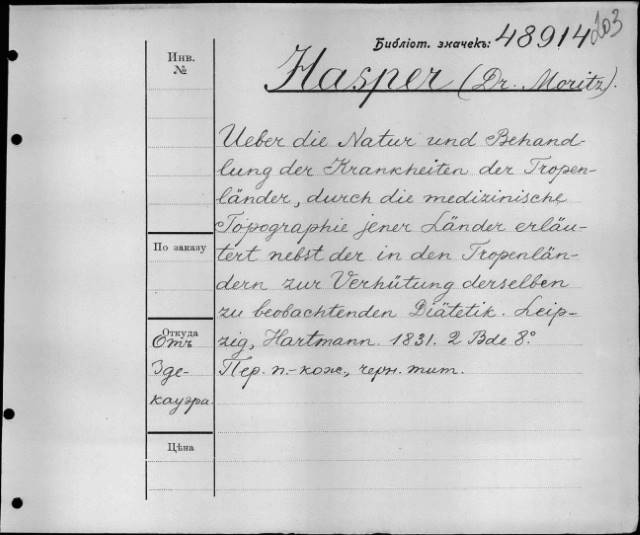 203
Библіот. значекъ: 48914
Hasper (Dr. Moritz).
Инв.
№
Ueber die Natur und Behand-
lung der Krankheiten der Tropen-
länder, durch die medizinische
Topographie jener Länder erläu-
tert nebst der in den Tropenlän-
dern zur Verhütung derselben
zu beobachtenden Diätetik. Leip-
zig, Hartmann. 1831. 2 Bde 8.°
Пер. п.-кож., черн. тит.
По заказу
Откуда
Отъ
Зде-
кауэра.
Цѣна